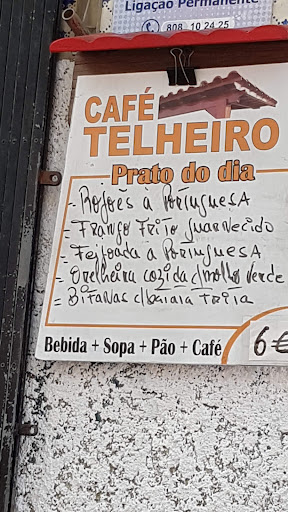 Ligação Permanente
808 10 24 25
CAFÉ
TELHEIRO
Prato do dia
- Rojões à Portuguesa
- Frango Frito Guarnecido
- Feijoada à Portuguesa
- Orelheira cozida c/molho verde
= Bifanas c/batata Frita
Bebida + Sopa + Pão + Café
6€